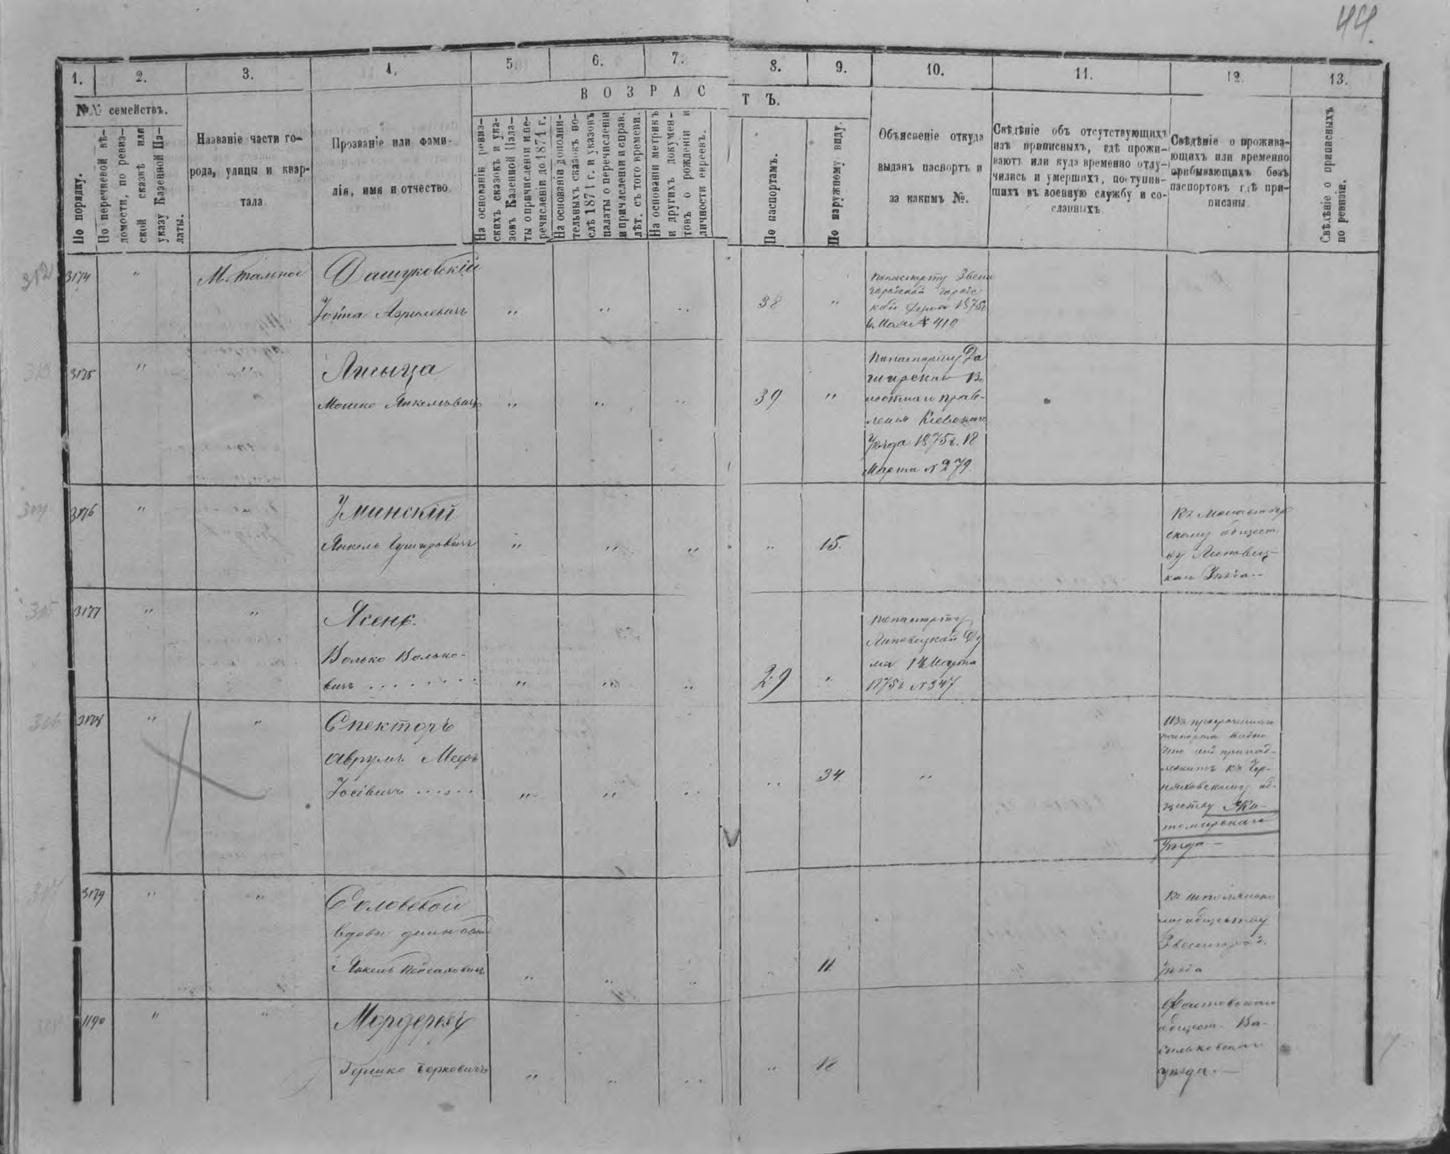 44.
1.
2.
3.
4.
5
6.
7.
8.
9.
10.
11.
12.
13.
№№ семействъ.
По порядку.
По перечневой вѣ-
домости, по ревиз-
ской сказкѣ или
указу Казенной Па-
латы.
Названіе части го-
рода, улицы и квар-
тала
Прозваніе или фами-
лія, имя и отчество
ВОЗРАС
ТЪ.
На основаніи ревиз-
скихъ сказокъ и ука-
зовъ Казенной Пала-
ты о причисленіи и пе-
речисленіи до 1871 г.
На основаніи дополни-
тельныхъ сказокъ по-
слѣ 1871 г. и указовъ
палаты о перечисленіи
и причисленіи и справ.
лѣт. съ того времени.
На основаніи метрикъ
и другихъ докумен-
товъ о рожденіи и
личности евреевъ.
По паспортамъ.
По наружному виду.
Объясненіе откуда
выданъ паспортъ и
за какимъ №.
Свѣдѣніе объ отсутствующихъ
изъ приписныхъ, гдѣ прожи-
ваютъ или куда временно отлу-
чились и умершихъ, поступив-
шихъ въ военную службу и со-
сланныхъ.
Свѣдѣніе о прожива-
ющихъ или временно
прибывающихъ безъ
паспортовъ гдѣ при-
писаны.
Свѣдѣніе о приписныхъ
по ревизіи.
3174 " М. Тальное Дашуковскій
Іойна Азрилевичъ " " " 38 "
1875
№ 410
3175 " "
Мошко Янкелевичъ " " " 39 "
Кіевскаго
Уѣзда 1875 г. 18
Марта № 279.
3176 " Уманскій
Янкель " " " " 15.
Липовец-
каго Уѣзда
3177 " " Ясень.
Волько Волько-
вичъ " " " 29 "
Липовецкой Ду
мы 14 Марта
1875 г. № 347
3178 " " Спекторъ
Аврумъ Мееръ
Іосіевичъ " " " " 34 "
что онъ принад-
лежитъ къ Чер-
няховскому об-
ществу Жи-
томирскаго
Уѣзда
3179 " " Соловевой
вдовы сынъ
Янкель Пейсаховичъ " " " 11
обществу
Звенигород.
уѣзда
1190 " "
Гершко Берковичъ " " " " 18
Фастовскаго
общест. Ва-
сильковскаго
уѣзда.